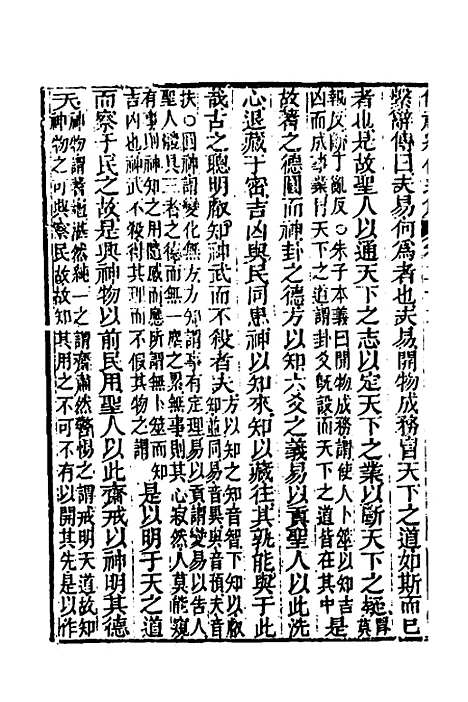 繫辭傳曰夫易何為者也夫易開物成務冒天下之道如斯而已
者也是故聖人以通天下之志以定天下之業以斷天下之疑冒莫
報反斷丁亂反○朱子本義曰開物成務謂使人卜筮以知吉
凶而成事業冒天下之道謂卦爻旣設而天下之道皆在其中
是
故蓍之德圓而神卦之德方以知六爻之義易以貢聖人以此洗
心退藏于密吉凶與民同患神以知來知以藏往其孰能與于此
哉古之聰明叡知神武而不殺者夫
方以知之知音智下知以叡
知並同易音異與音預夫音
扶○圓神謂變化無方方知謂事有定理易以貢謂變易以告人
聖人體具三者之德而無一塵之累無事則其心寂然人莫能窺
有事則神知之用隨感而應所謂無卜筮而知
吉凶也神武不殺得其理而不假其物之謂
是以明于天之道
而察于民之故是興神物以前民用聖人以此齋戒以神明其德
夫
神物謂蓍龜湛然純一之謂齋肅然警惕之謂戒明天道故知
神物之可興察民故故知其用之不可不有以開其先是以作